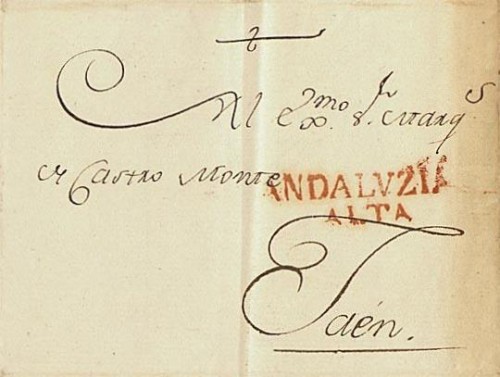 Al Exmo Sr. Marqs
de Castro Monte
ANDALVZIA
ALTA
Jaén.